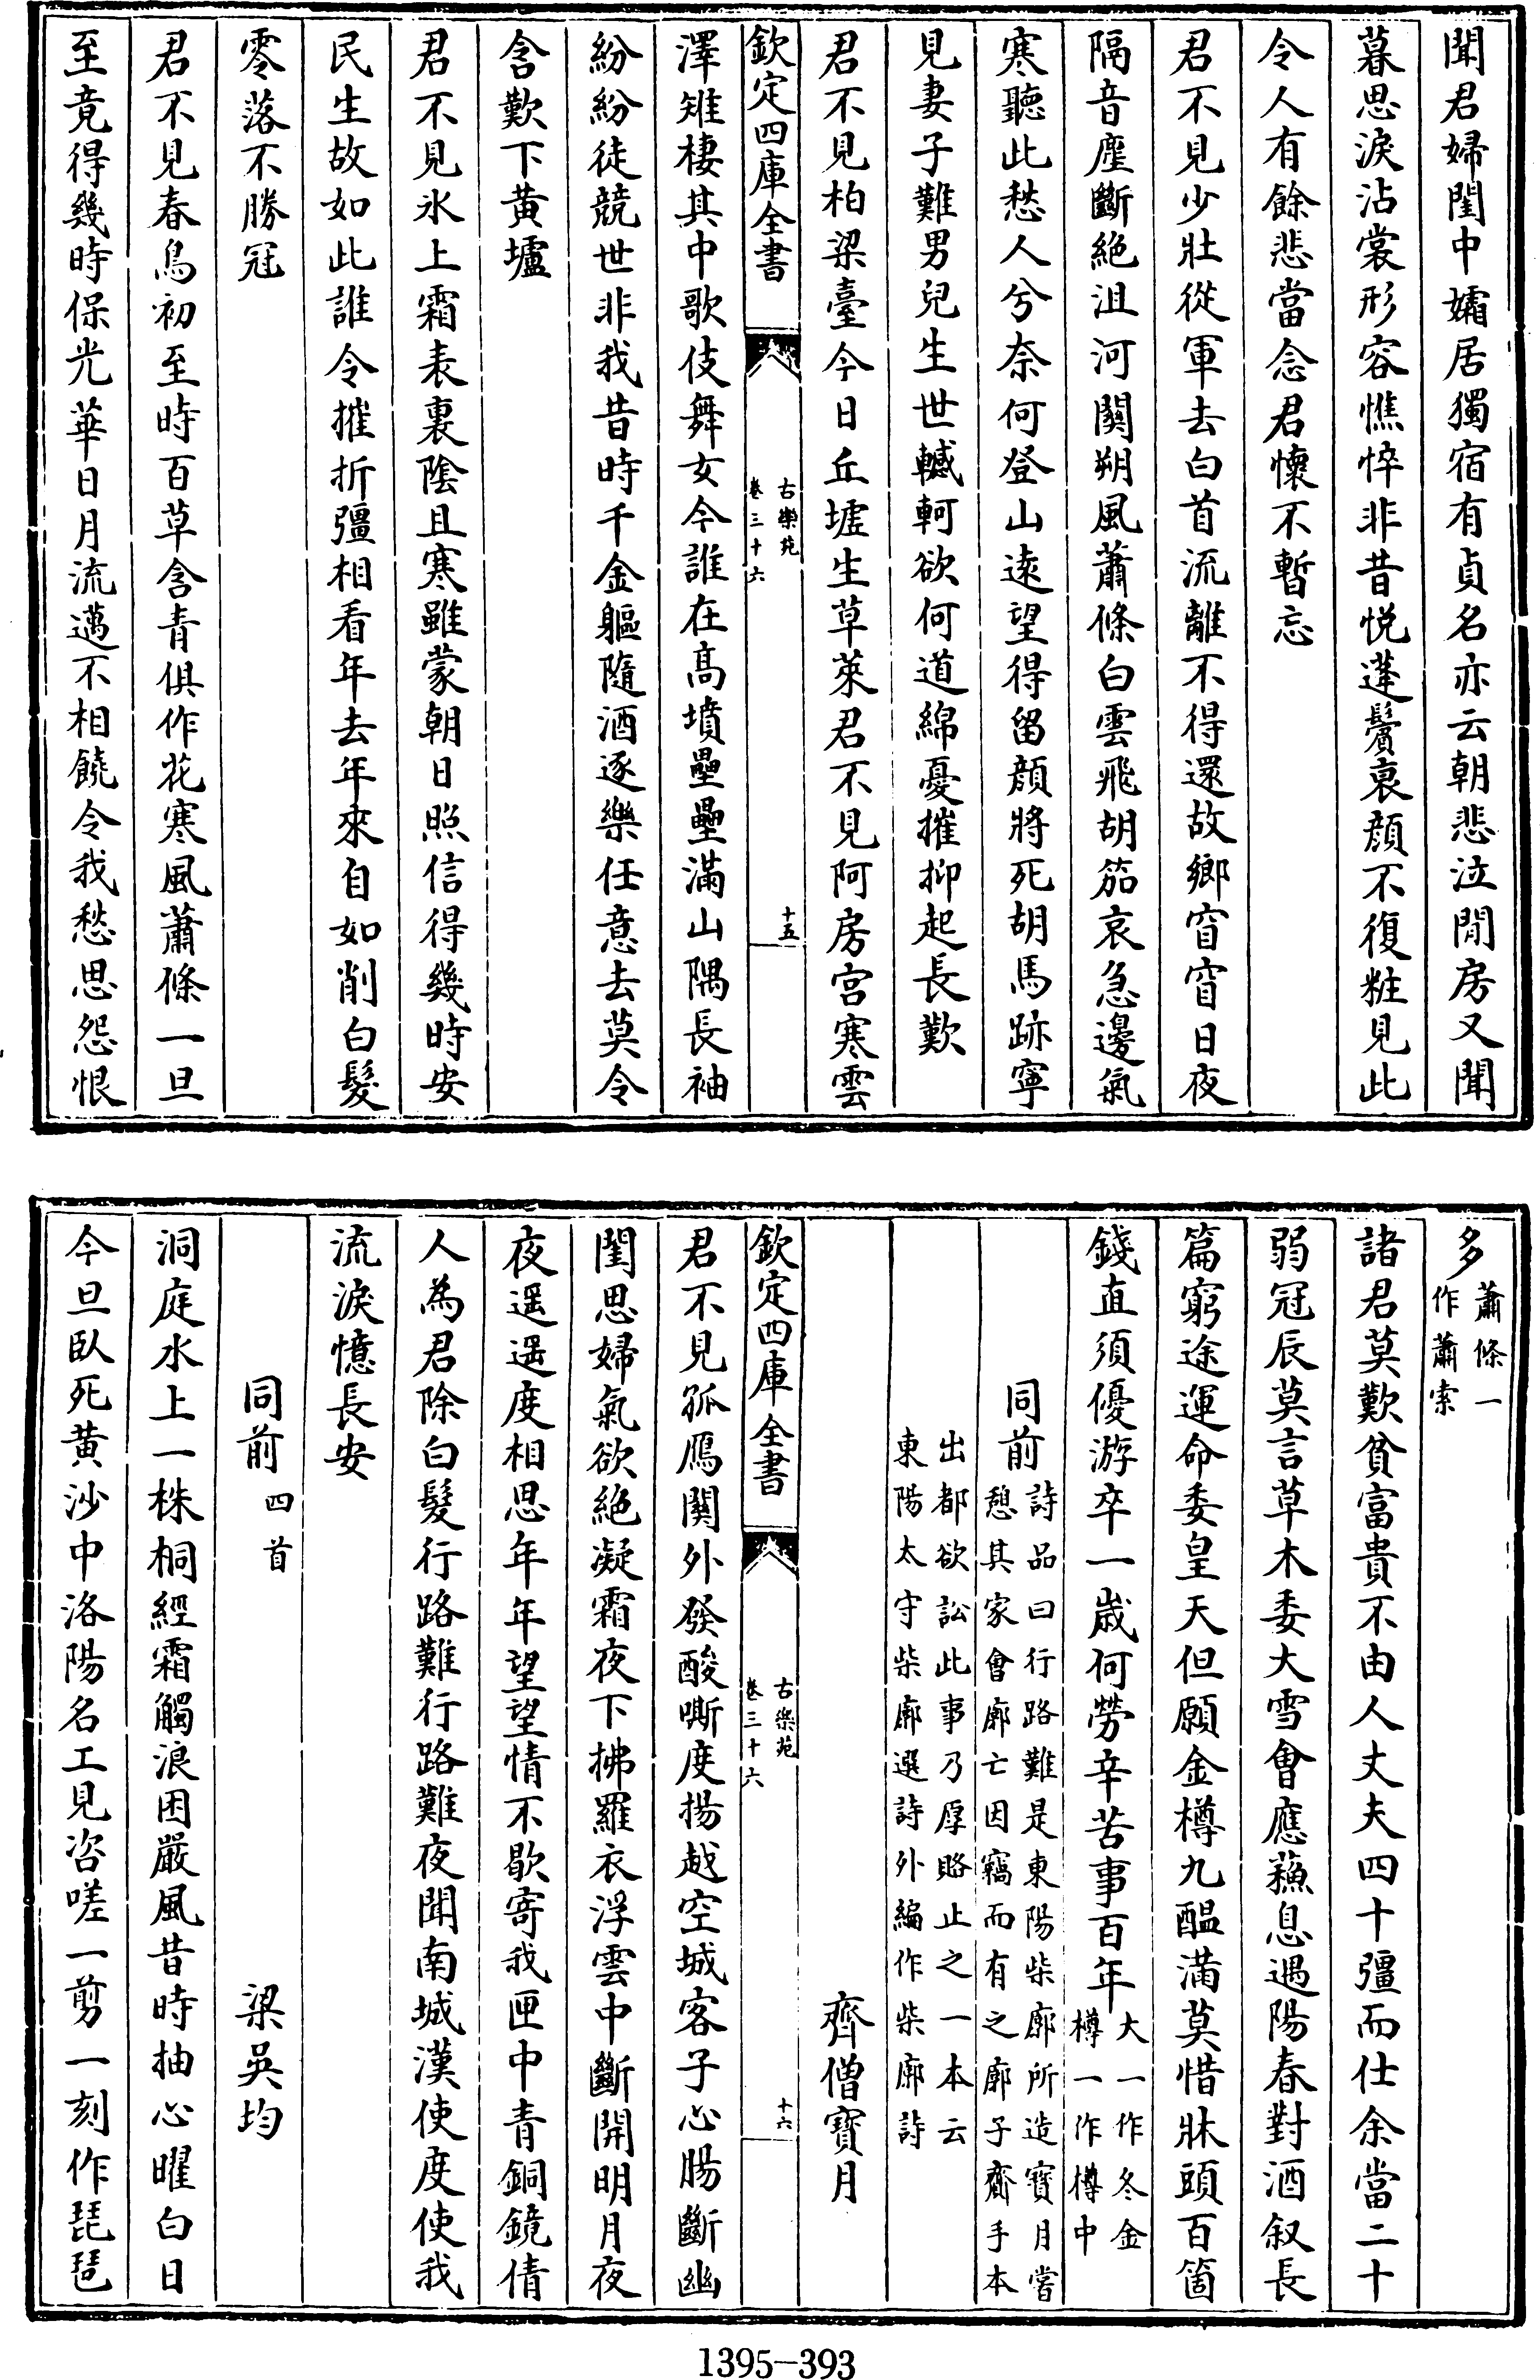 聞君婦閨中孀居獨宿有貞名亦云朝悲泣閒房又聞
暮思淚沾裳形容憔悴非昔悦蓬鬢衰顔不復粧見此
令人有餘悲當念君懷不暫忘
君不見少壯從軍去白首流離不得還故鄉窅窅日夜
隔音塵斷絶沮河關朔風蕭條白雲飛胡笳哀急邊氣
寒聽此愁人兮奈何登山逺望得留顔將死胡馬跡寧
見妻子難男兒生世轗軻欲何道綿憂摧抑起長歎
君不見柏梁臺今日丘墟生草萊君不見阿房宫寒雲
欽定四庫全書
古樂苑
卷三十六
十五
澤雉棲其中歌伎舞女今誰在髙墳壘壘滿山隅長袖
紛紛徒競世非我昔時千金軀隨酒逐樂任意去莫令
含歎下黄壚
君不見氷上霜表裏陰且寒雖蒙朝日照信得幾時安
民生故如此誰令摧折彊相看年去年來自如削白髮
零落不勝冠
君不見春鳥初至時百草含青俱作花寒風蕭條一旦
至竟得幾時保光華日月流邁不相饒令我愁思怨恨
多蕭條一
作蕭索
諸君莫歎貧富貴不由人丈夫四十彊而仕余當二十
弱冠辰莫言草木委大雪會應蘓息遇陽春對酒叙長
篇窮途運命委皇天但願金樽九醖滿莫惜牀頭百箇
錢直須優游卒一歳何勞辛苦事百年大一作冬金
樽一作樽中
同前詩品曰行路難是東陽柴廓所造寳月嘗
憩其家會廓亡因竊而有之廓子齎手本
出都欲訟此事乃厚賂止之一本云
東陽太守柴廓選詩外編作柴廓詩
齊僧寳月
欽定四庫全書
古樂苑
卷三十六
十六
君不見孤鴈關外發酸嘶度揚越空城客子心腸斷幽
閨思婦氣欲絶凝霜夜下拂羅衣浮雲中斷開明月夜
夜遥遥度相思年年望望情不歇寄我匣中青銅鏡倩
人為君除白髮行路難行路難夜聞南城漢使度使我
流淚憶長安
同前四首
梁吳均
洞庭水上一株桐經霜觸浪困嚴風昔時抽心曜白日
今旦臥死黄沙中洛陽名工見咨嗟一剪一刻作琵琶
1395-393